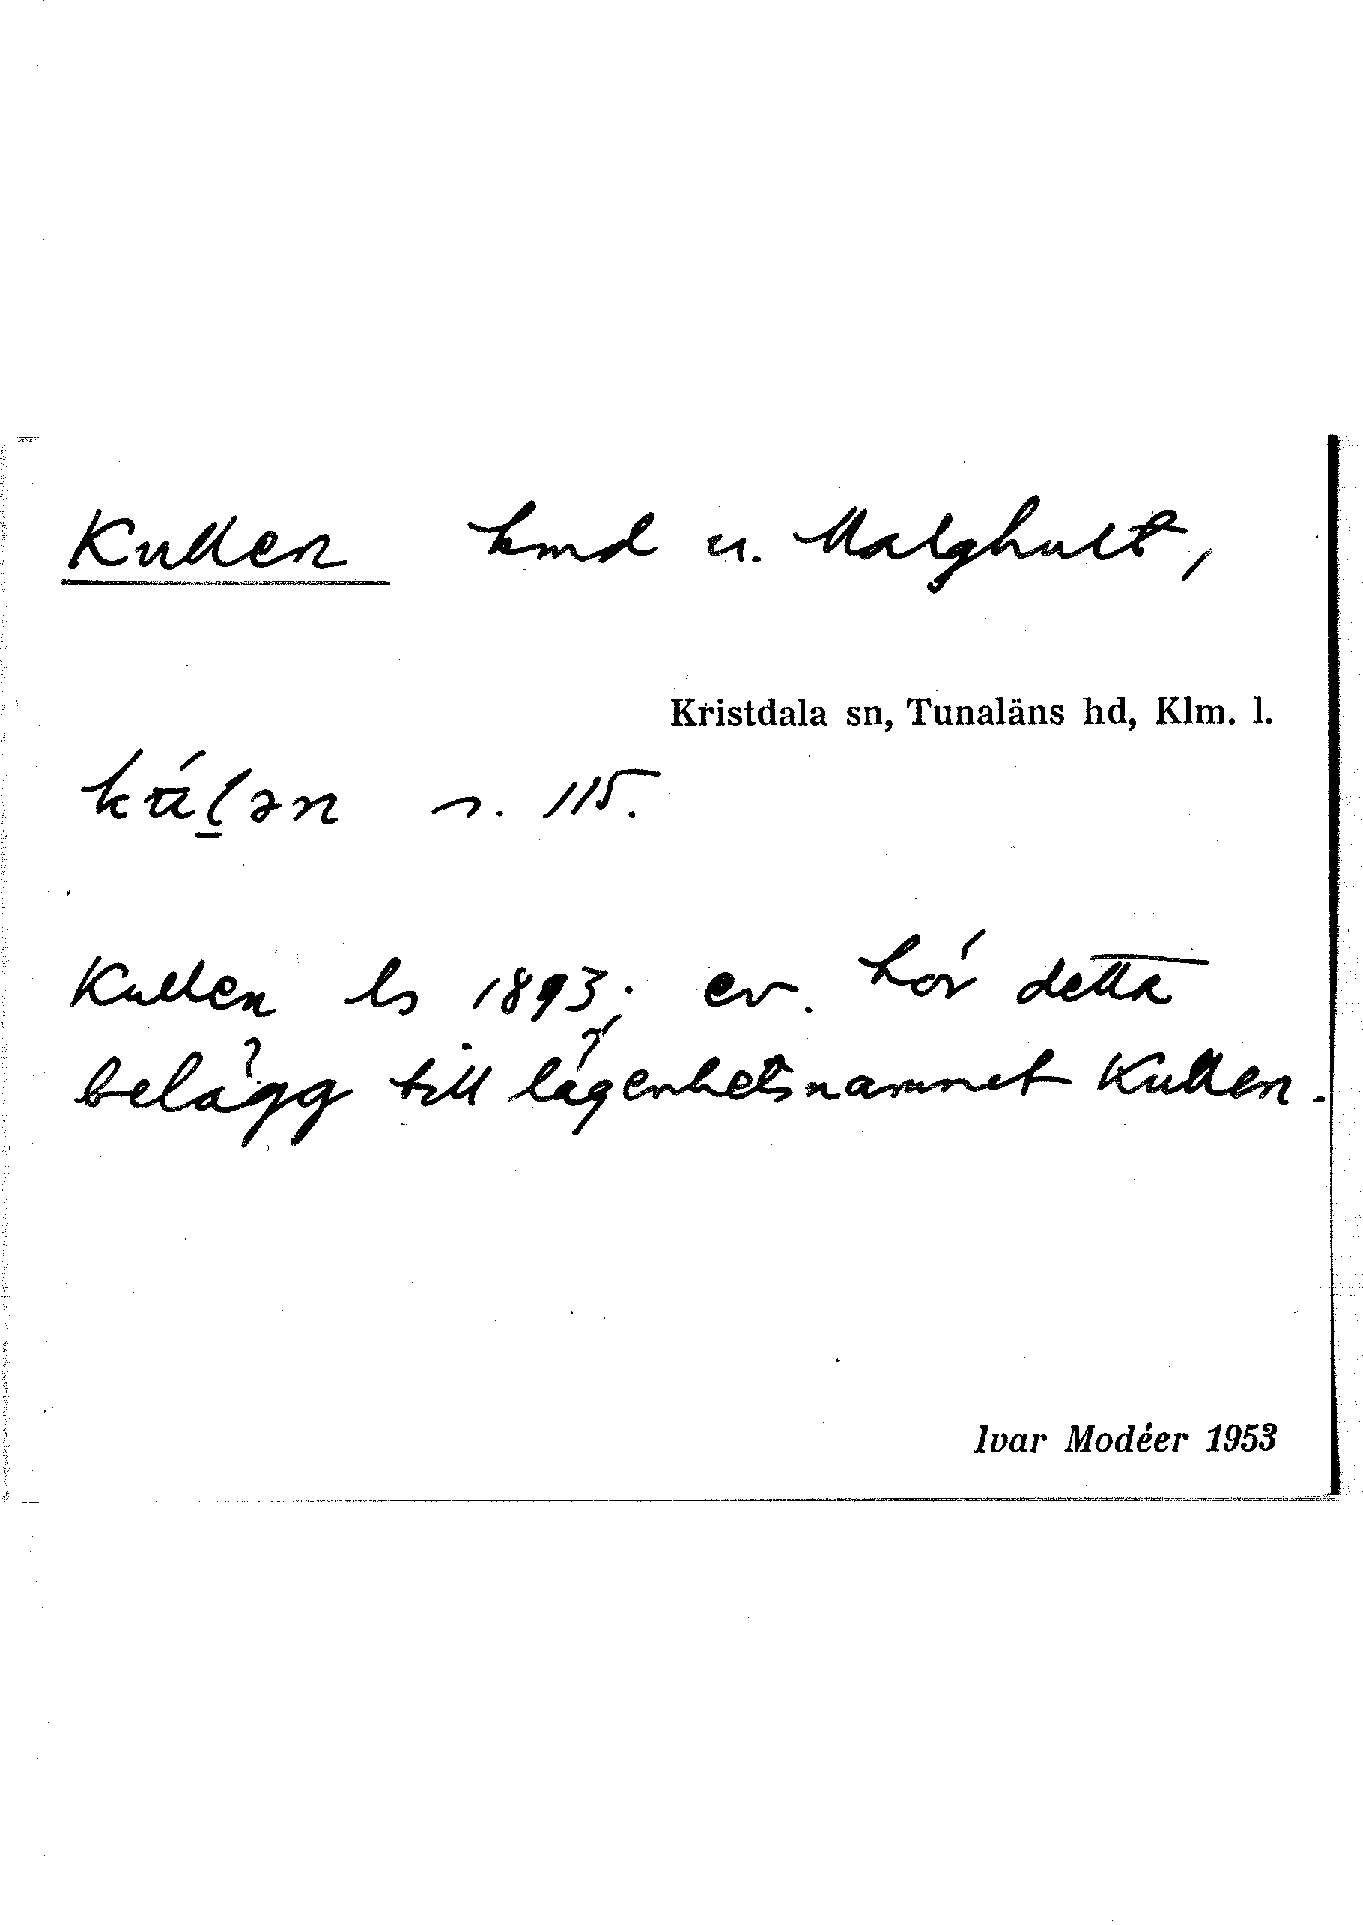 Kullen hmd u. Malghult,
Kristdala sn, Tunaläns hd, Klm. l.
s. 115.
Kullen ls 1893; ev. hör detta
belägg till lägenhetsnamnet Kullen.
Ivar Modéer 1953